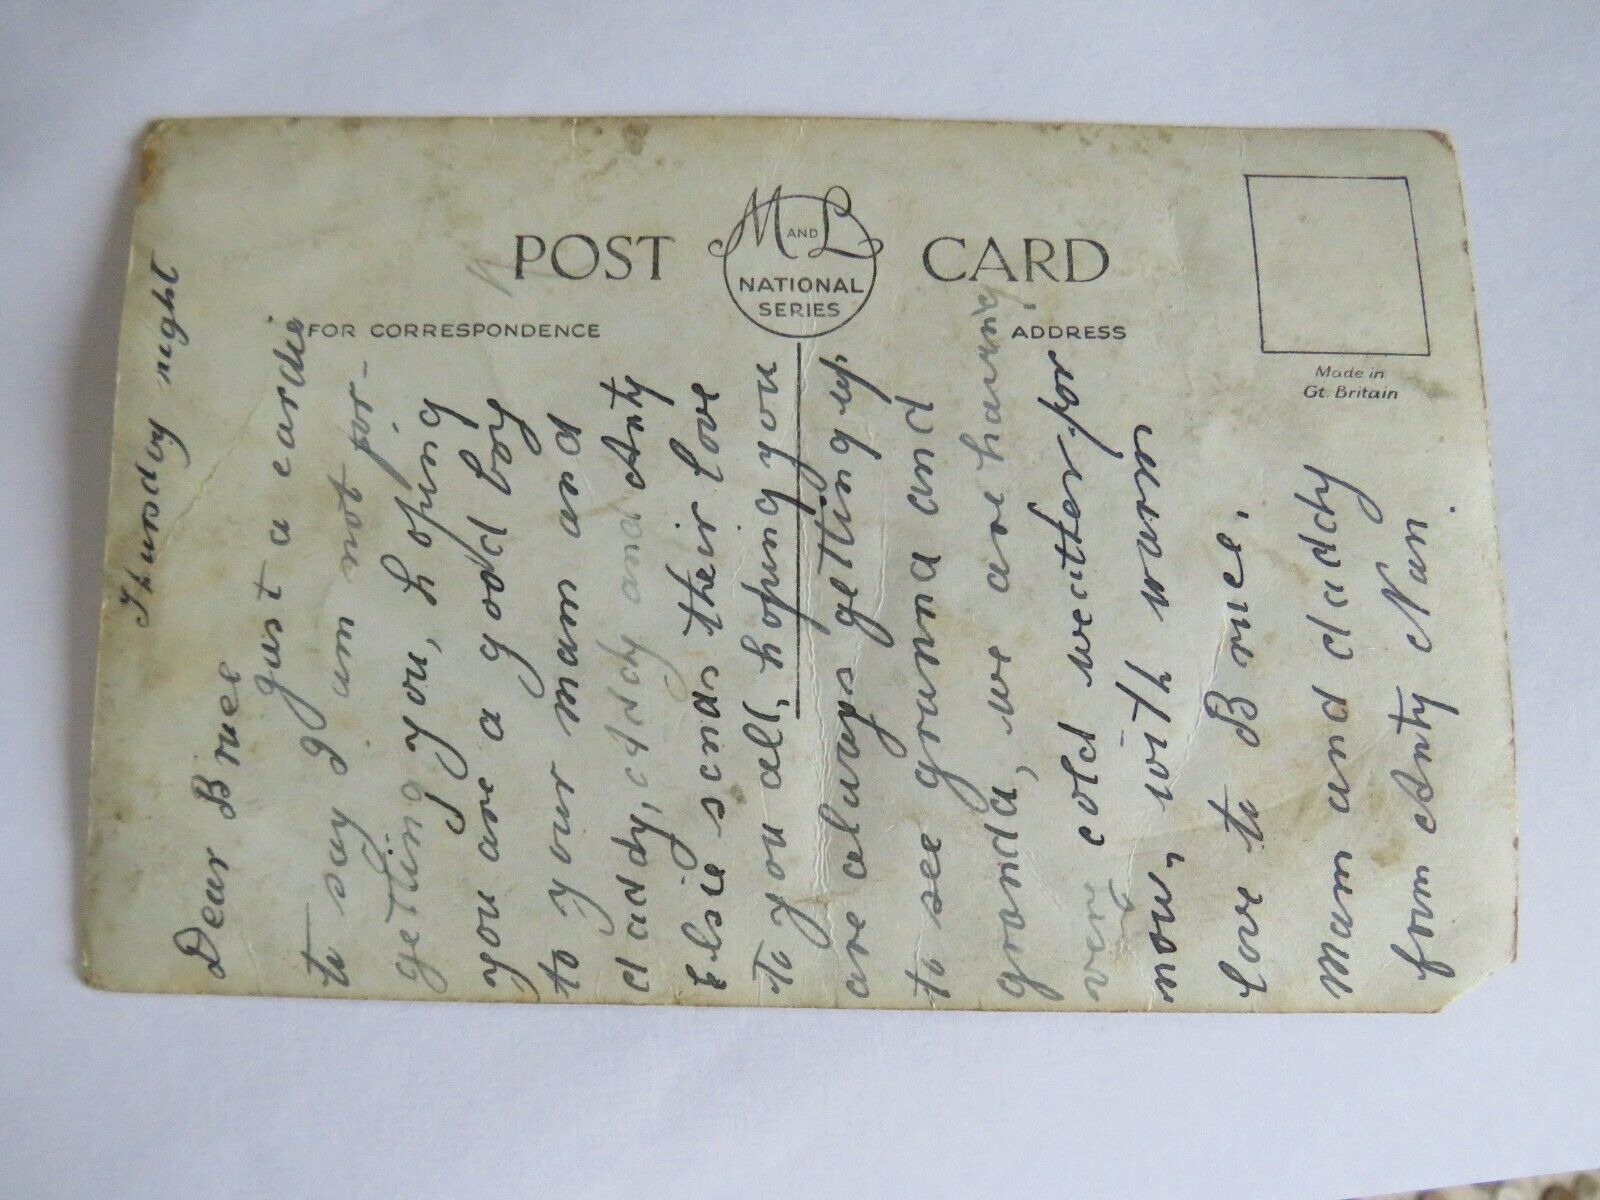 POST CARD
M AND L
NATIONAL
SERIES
FOR CORRESPONDENCE
ADDRESS
Made in
Gt. Britain
Thursday night
Dear Bruce
just a cardie
to say I am not for-
getting you, hoping
you are a good boy
to your mam and
daddy, and Anty
Elsie sends their love
to you all, hoping you
are always getting up
to see granma and
granda, we are having
very cold weather for
now, with warm
love to Bruce.
Mam and daddy
from Anty Nan.